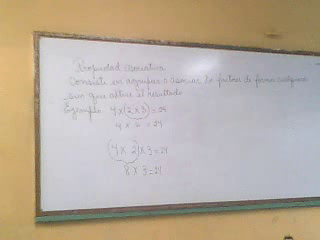 Propiedad asociativa
Consiste en agrupar o asociar los factores de forma cualquiera
sin que altere el resultado
Ejemplo 4 x (2 x 3) = 24
4 x 6 = 24
(4 x 2) x 3 = 24
8 x 3 = 24